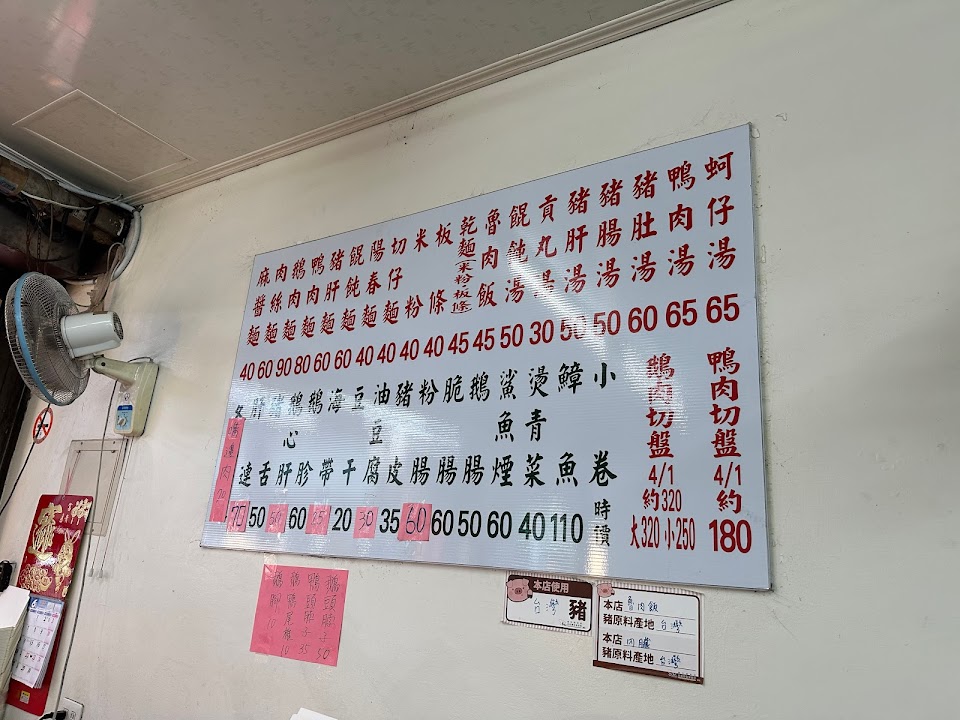 蚵仔湯 65
鴨肉湯 65
豬肚湯 60
豬腸湯 50
豬肝湯 50
貢丸湯 30
餛飩湯 50
魯肉飯 45
乾麵(米粉·板條) 45
板條 40
米粉 40
切仔麵 40
陽春麵 40
餛飩麵 60
豬肝麵 60
鴨肉麵 80
鵝肉麵 90
肉絲麵 60
麻醬麵 40
鴨肉切盤 4/1 約 180
鵝肉切盤 4/1 約320 大320 小250
小卷 時價
鱆魚 110
燙青菜 40
鯊魚煙 60
鵝腸 50
脆腸 60
粉腸 60
豬皮 35
油豆腐 30
豆干 20
海帶
鵝胗 60
鵝心肝 50
豬舌 50
肝連 75
肉 70
鵝頭脖子 50
鴨頭脖子 35
鵝尾椎
鵝腳 10
本店使用
台灣 豬
本店 魯肉飯
豬原料產地 台灣
本店 肉臟
豬原料產地 台灣